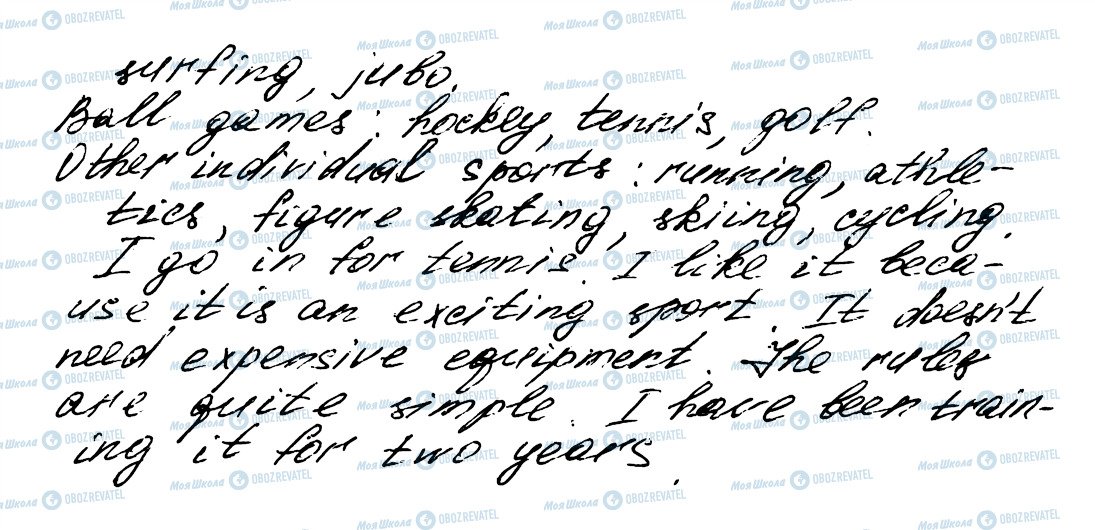 surfing, judo.
Ball games: hockey, tennis, golf.
Other individual sports: running, athle-
tics, figure skating, skiing, cycling.
I go in for tennis. I like it beca-
use it is an exciting sport. It doesn't
need expensive equipment. The rules
are quite simple. I have been train-
ing it for two years.